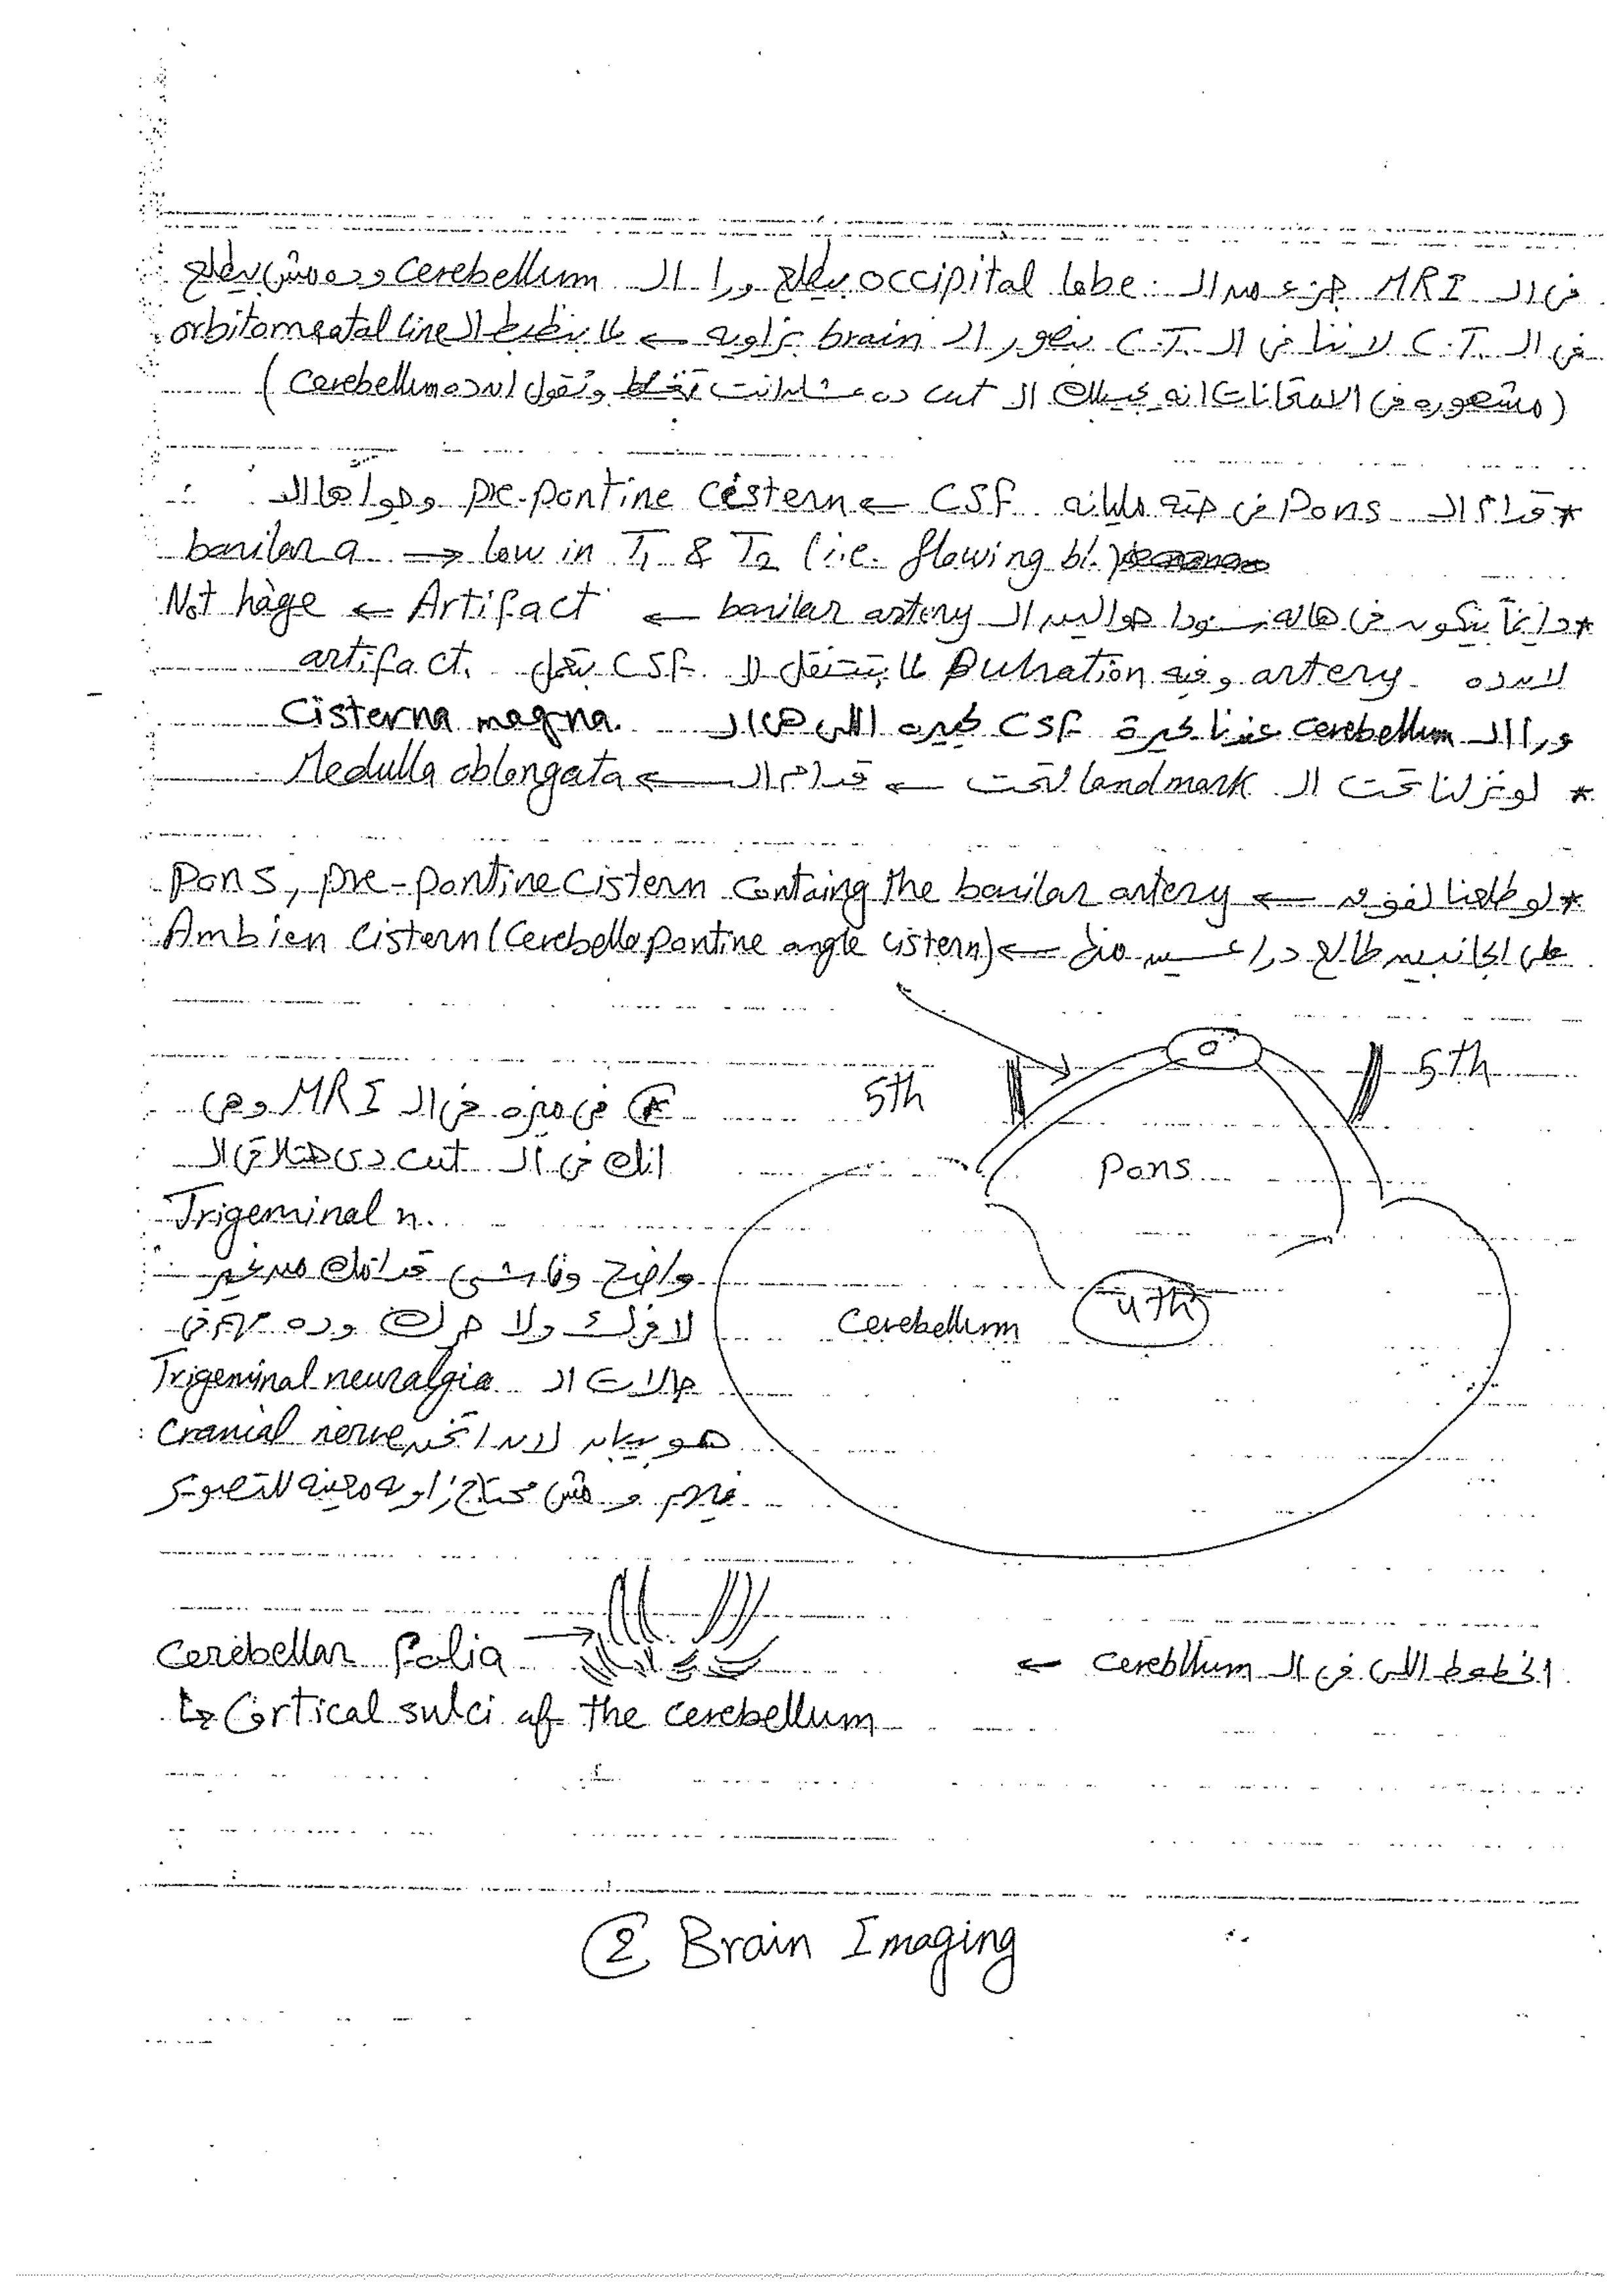 فى الـ MRI جزء من الـ occipital lobe بيطلع ورا الـ cerebellum وده مش بيطلع
فى الـ C.T. لاننا فى الـ C.T. بنصور الـ brain بزاويه ← لما بنظبط الـ orbitomeatal line
(مشهوره فى الامتحانات انه يجيبلك الـ cut ده عشان انت تغلط وتقول ان ده cerebellum)
* قدام الـ Pons فى حته مليانه CSF ← pre-pontine cistern وجواها الـ
basilar a → low in T1 & T2 (i.e. flowing bl.)
* دايماً بيكون فى هاله سودا حوالين الـ basilar artery ← Artifact ← Not hage
لان ده artery وفيه Pulsation لما بتتنقل لـ CSF بتعمل artifact.
ورا الـ cerebellum عندنا بحيرة CSF كبيره اللى هى الـ Cisterna magna.
* لو نزلنا تحت الـ landmark لتحت ← قدام الـ ← Medulla oblongata
* لو طلعنا لفوق ← Pons, pre-pontine Cistern Containg the basilar artery
على الجانبين طالع دراعين منه ← Ambien Cistern (Cerebello pontine angle cistern)
5th
5th
Pons
4th
Cerebellum
* فى ميزه فى الـ MRI وهى
انك فى الـ cut دى هتلاقى الـ
Trigeminal n.
واضح وماشى قدامك من غير
لا فرك ولا حرك وده مهم فى
حالات الـ Trigeminal neuralgia
هو بيبان لان اتخن cranial nerve
فيهم و مش محتاج زاويه معينه للتصوير
الخطوط اللى فى الـ cerebllum ←
Cerebellar folia →
↳ Cortical sulci of the cerebellum
2 Brain Imaging